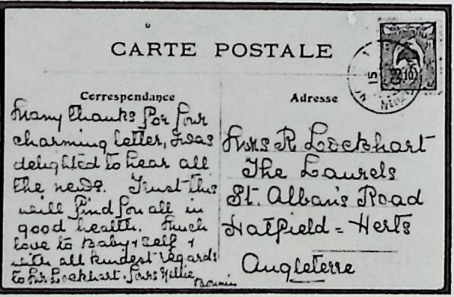 CARTE POSTALE
Correspondance
Many thanks for your
charming letter, I was
delighted to hear all
the news. Trust this
will find you all in
good health. Much
love to Baby & self &
with all kindest regards
to Mr Lockhart. Yours Millie
Adresse
Mrs R Lockhart
The Laurels
St. Alban's Road
Hatfield = Herts
Angleterre
15